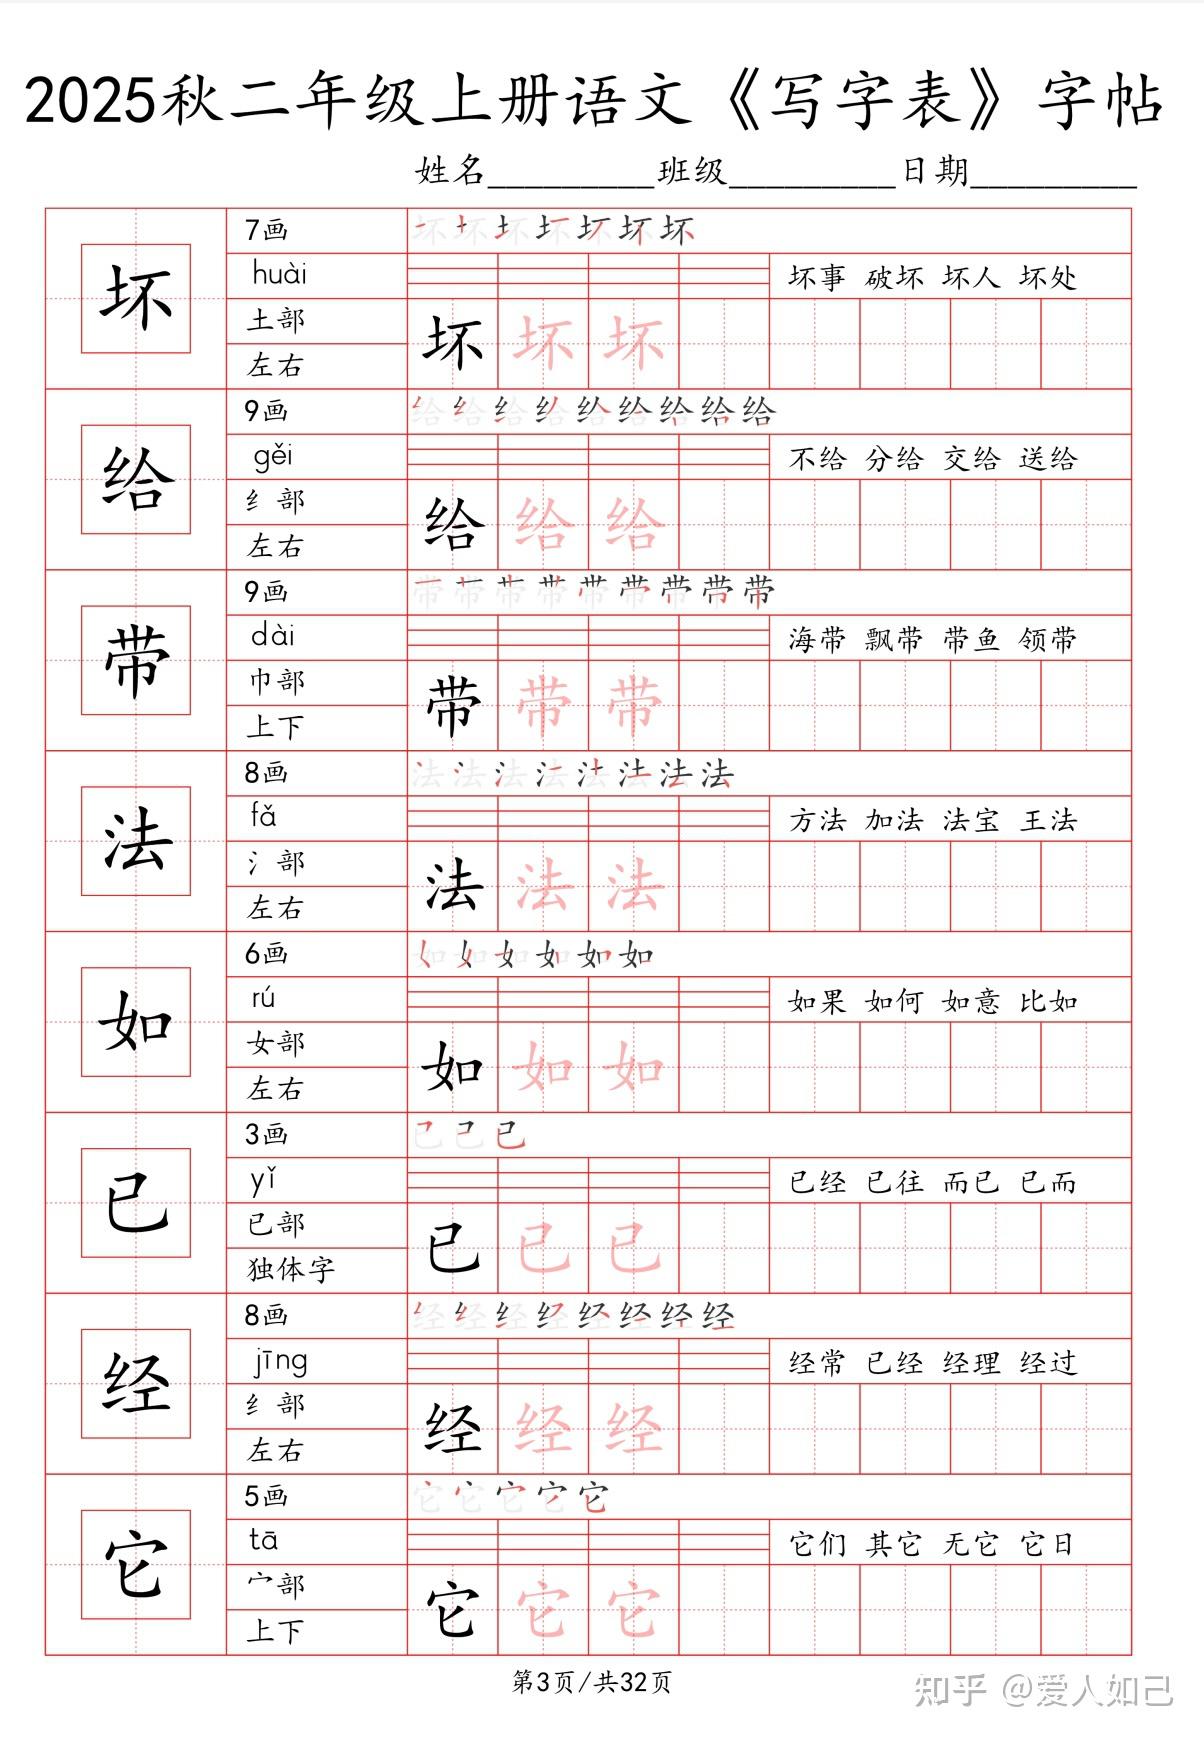 2025秋二年级上册语文《写字表》字帖
姓名_________班级_________日期_________
坏
7画
坏坏坏坏坏坏坏
huài
坏事 破坏 坏人 坏处
土部
左右
坏 坏 坏
给
9画
给给给给给给给给给
gěi
不给 分给 交给 送给
纟部
左右
给 给 给
带
9画
带带带带带带带带带
dài
海带 飘带 带鱼 领带
巾部
上下
带 带 带
法
8画
法法法法法法法法
fǎ
方法 加法 法宝 王法
氵部
左右
法 法 法
如
6画
如如如如如如
rú
如果 如何 如意 比如
女部
左右
如 如 如
已
3画
已已已
yǐ
已经 已往 而已 已而
已部
独体字
已 已 已
经
8画
经经经经经经经经
jīng
经常 已经 经理 经过
纟部
左右
经 经 经
它
5画
它它它它它
tā
它们 其它 无它 它日
宀部
上下
它 它 它
第3页/共32页
知乎 @爱人如己